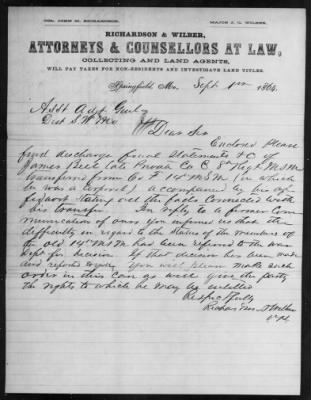 COL. JOHN M. RICHARDSON. MAJOR J. C. WILBER.
RICHARDSON & WILBER,
ATTORNEYS & COUNSELLORS AT LAW,
COLLECTING AND LAND AGENTS,
WILL PAY TAXES FOR NON-RESIDENTS AND INVESTIGATE LAND TITLES.
Springfield, Mo. Sept 1864.
Asst Adjt Genl
Dist S.W. Mo
Dear Sir
Enclosed Please
find discharge final Statements &c of
James Bell late Privat Co 8" Regt M S M
transferred from Co F 14" M S M (in which
he was a Corporal) accompanied by his
stating out the facts connected with
his transfer. In reply to a former Com
munication of ours you informed us that the
difficulty in regard to the Status of the members of
the old 14" M S M had been referred to the War
Dept for decision. If that decision has been made
and you will please make such
order in this case as will give the party
the rights to which he may be entitled
Respectfully
Richardson & Wilber